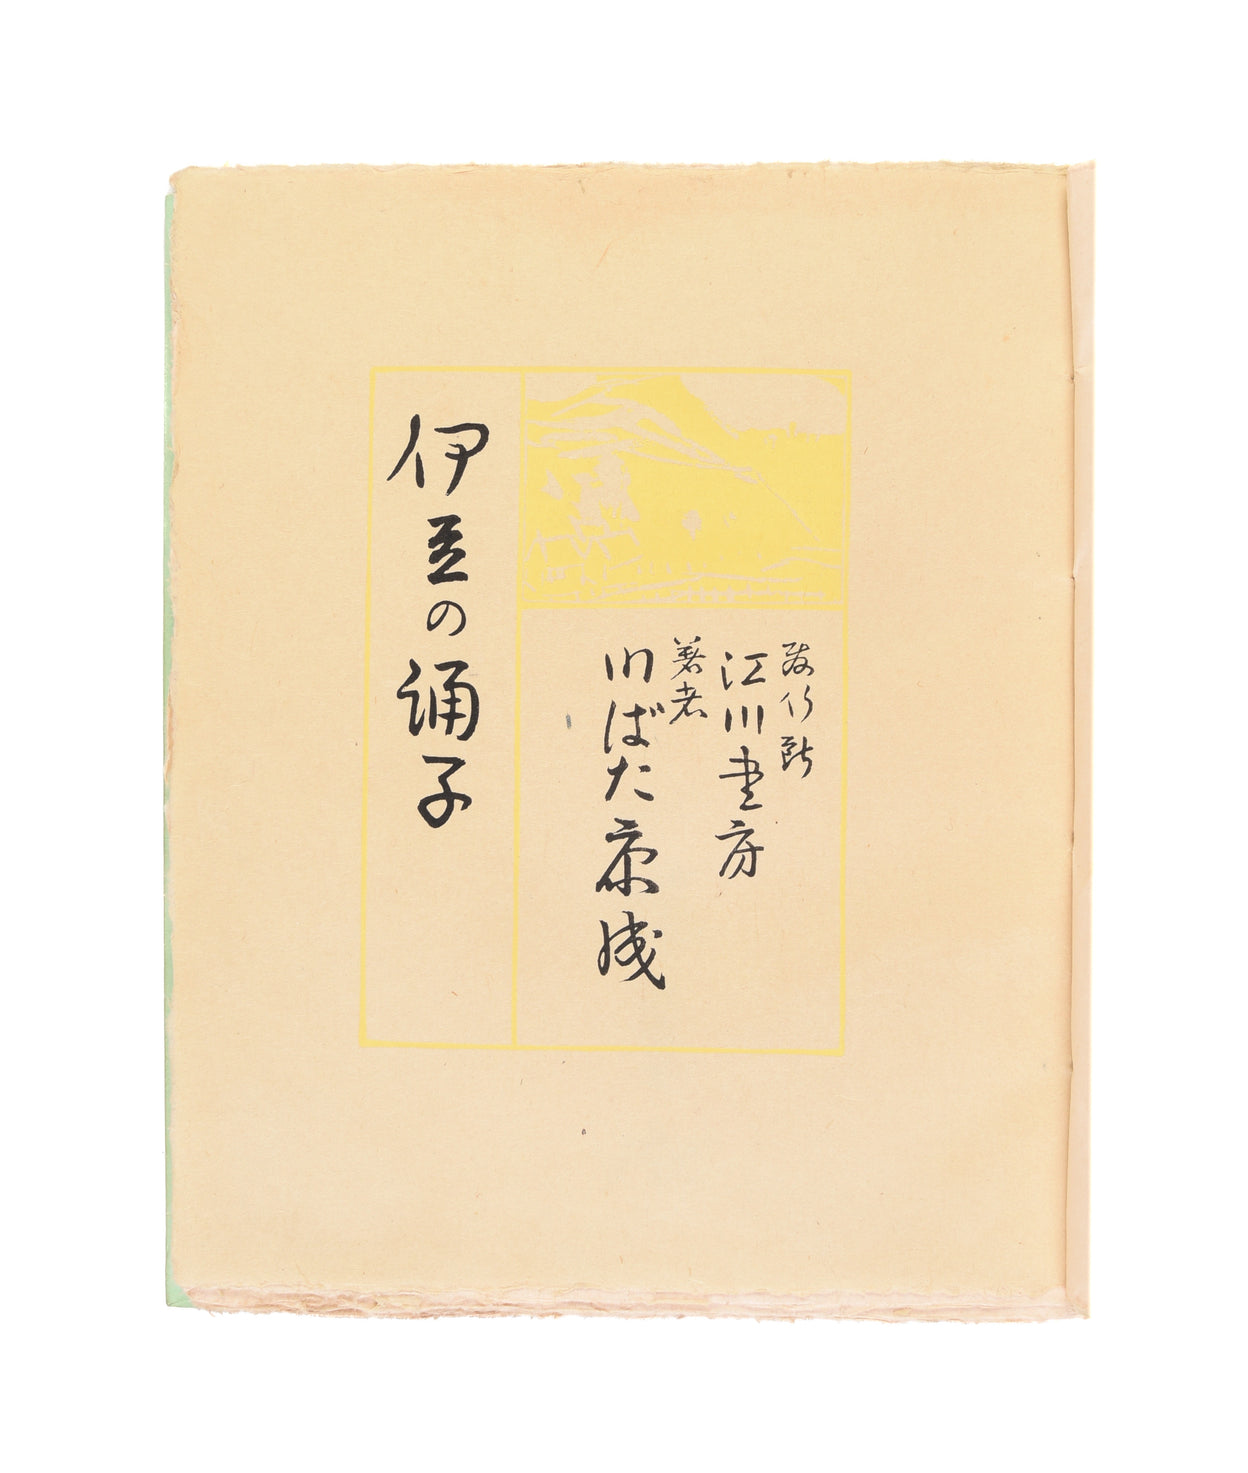 發行所
江川書房
著者
川ばた康成
伊豆の踊子